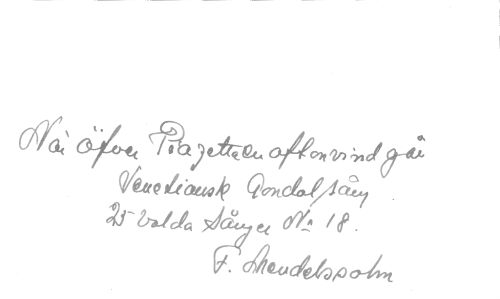 När öfver Piazettan aftonvind går
Venetiansk Gondolsång
25 valda Sånger No 18.
F. Mendelssohn